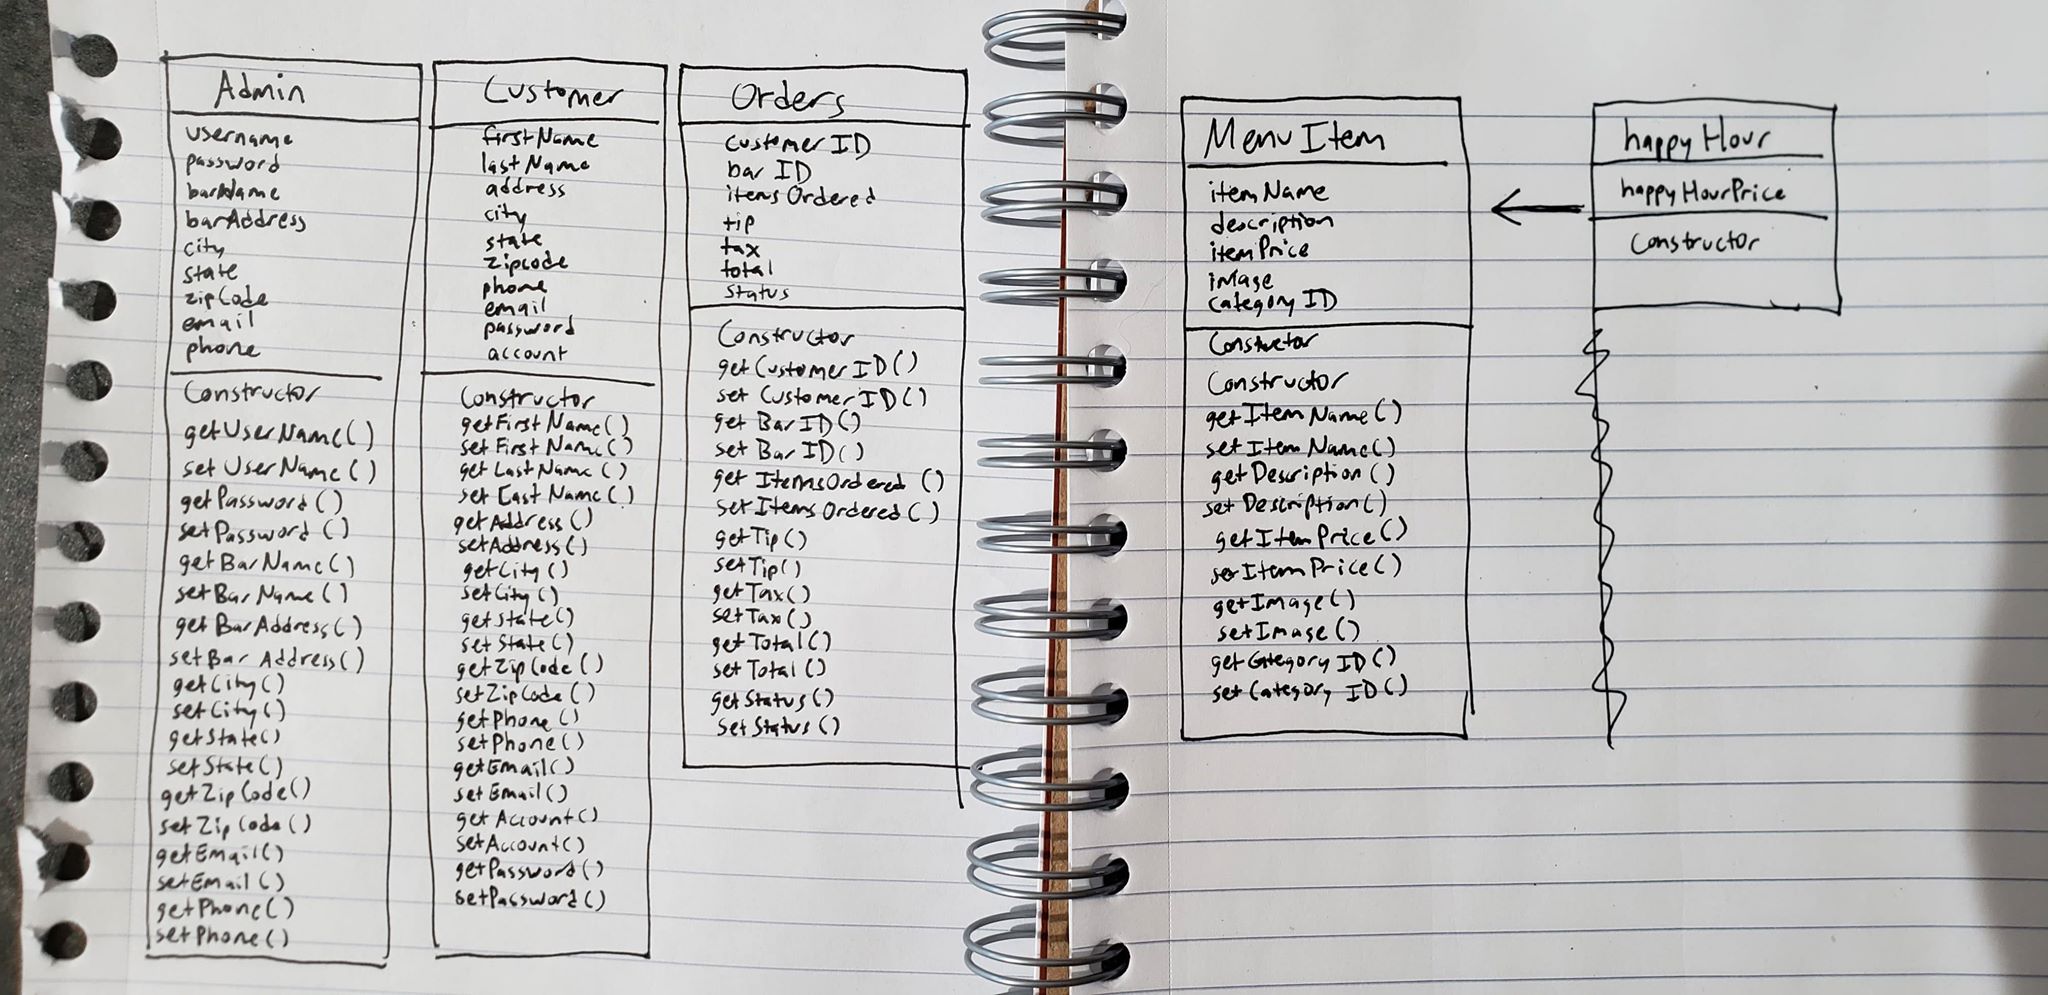 Admin
username
password
barName
barAddress
city
state
zipCode
email
phone
Constructor
getUserName()
setUserName()
getPassword()
setPassword()
getBarName()
setBarName()
getBarAddress()
setBar Address()
getCity()
setCity()
getState()
setState()
getZipCode()
setZipCode()
getEmail()
setEmail()
getPhone()
setPhone()
Customer
firstName
lastName
address
city
state
zipcode
phone
email
password
account
Constructor
getFirstName()
setFirstName()
getLastName()
setLastName()
getAddress()
setAddress()
getCity()
setCity()
getState()
setState()
getZipCode()
setZipCode()
getPhone()
setPhone()
getEmail()
setEmail()
getAccount()
setAccount()
getPassword()
setPassword()
Orders
customerID
barID
itemsOrdered
tip
tax
total
status
Constructor
getCustomerID()
setCustomerID()
getBarID()
setBarID()
getItemsOrdered()
setItemsOrdered()
getTip()
setTip()
getTax()
setTax()
getTotal()
setTotal()
getStatus()
setStatus()
MenuItem
itemName
description
itemPrice
image
categoryID
Constuctor
Constructor
getItemName()
setItemName()
getDescription()
setDescription()
getItemPrice()
setItemPrice()
getImage()
setImage()
getCategoryID()
setCategoryID()
happyHour
happyHourPrice
Constructor